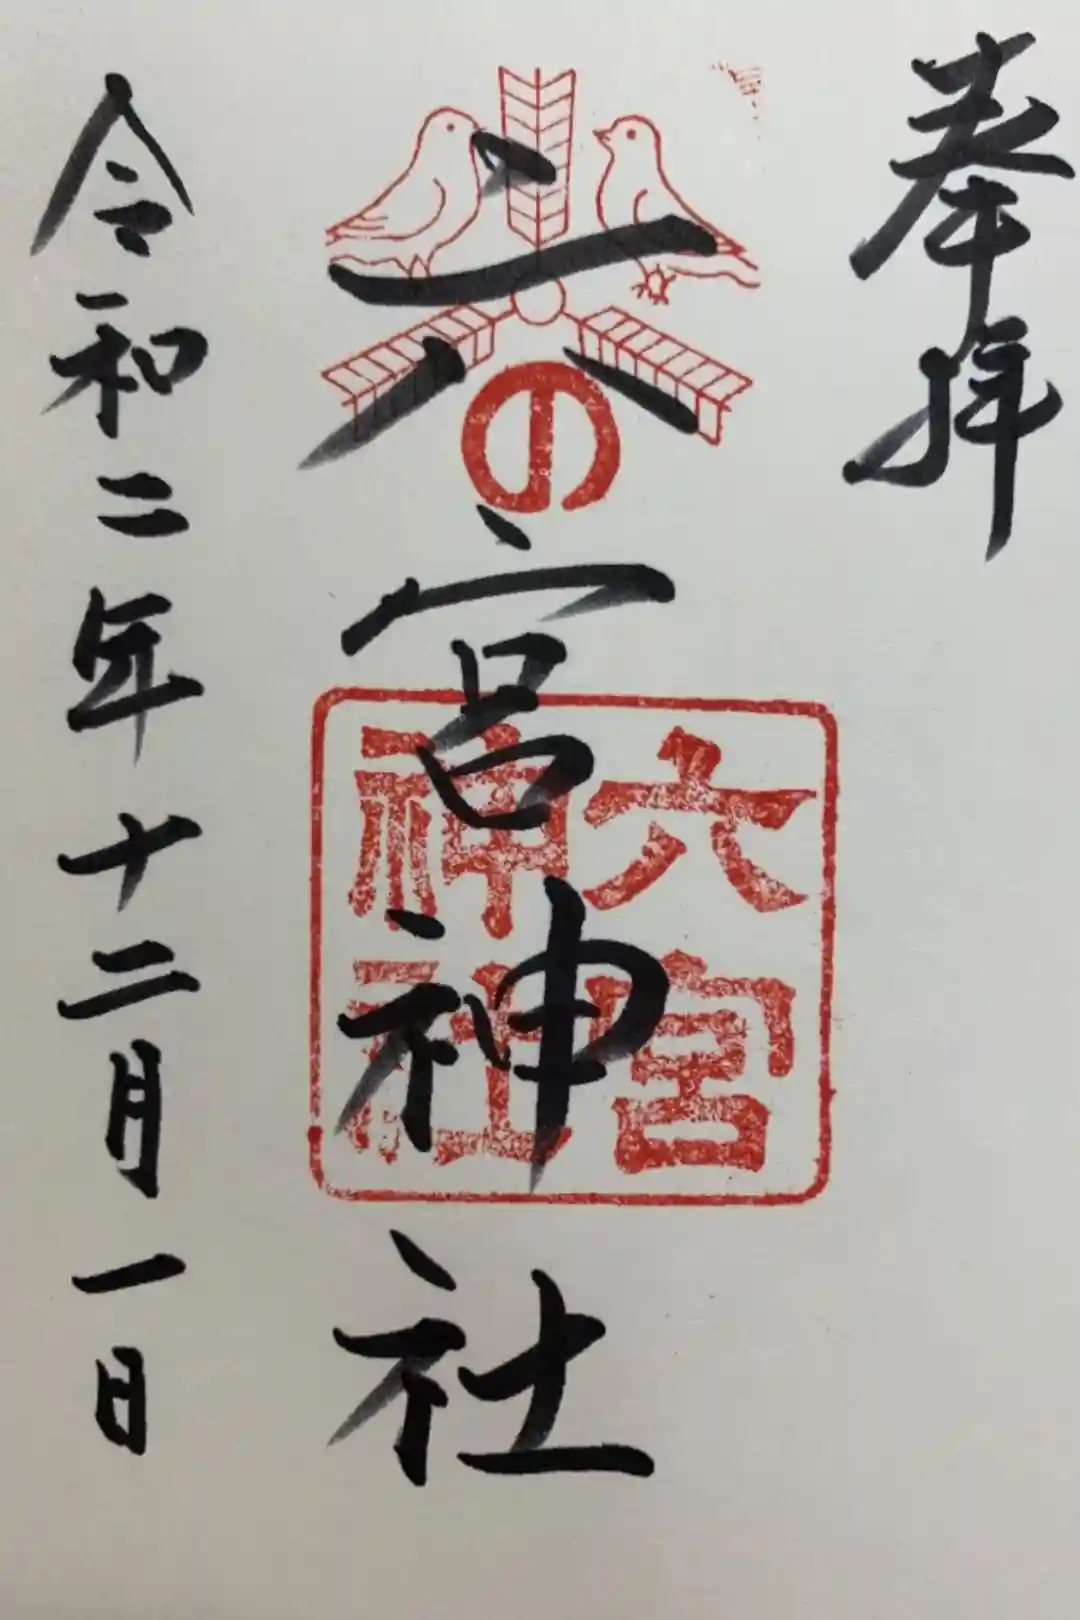 奉拝
六の宮神社
六宮
神社
令和二年十二月一日